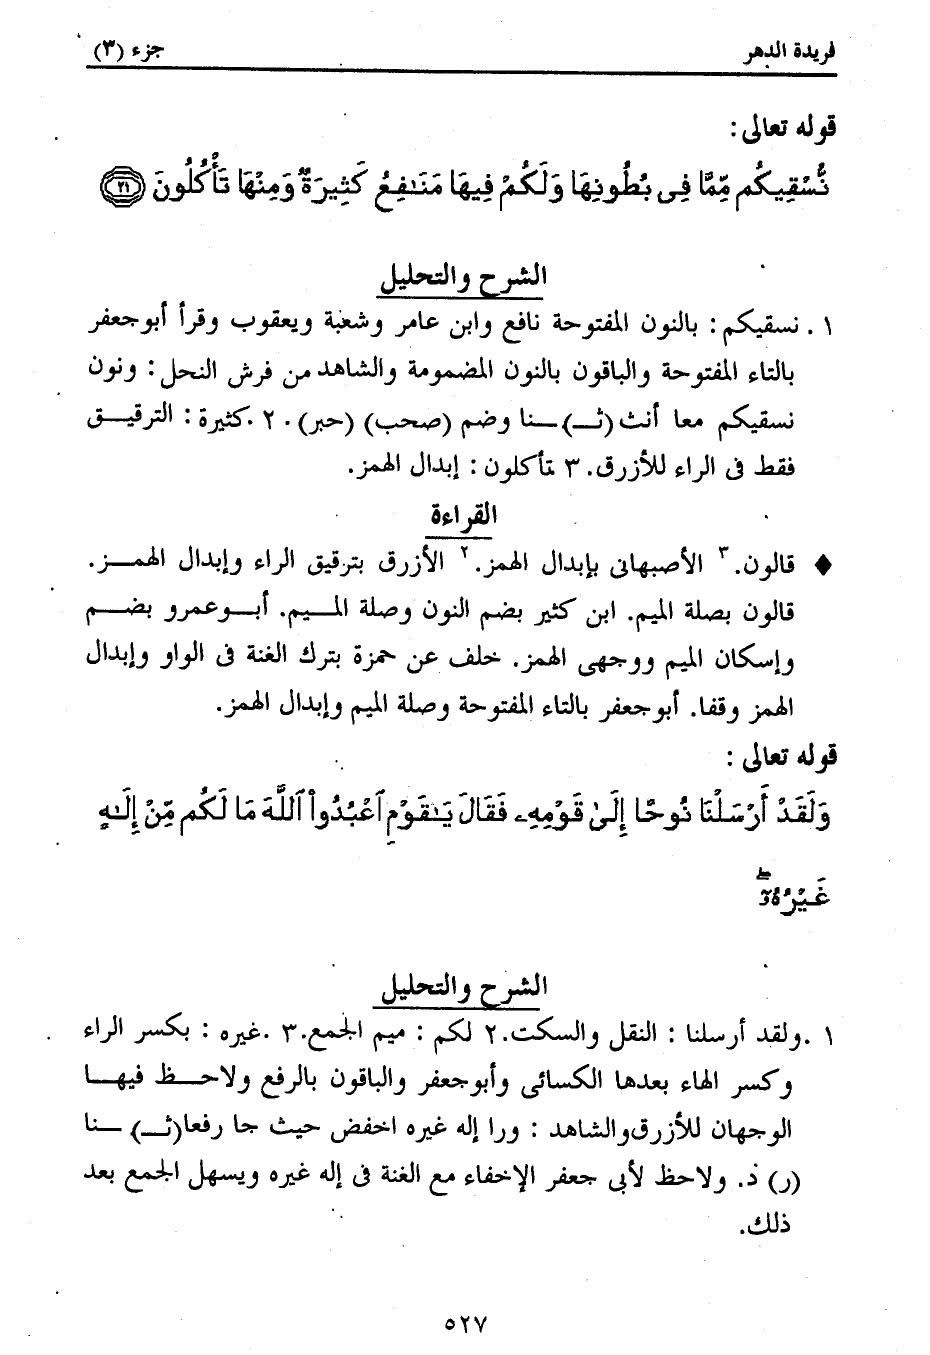 فريدة الدهر
جزء (٣)
قوله تعالى:
نُّسْقِيكُم مِّمَّا فِى بُطُونِهَا وَلَكُمْ فِيهَا مَنَـٰفِعُ كَثِيرَةٌ وَمِنْهَا تَأْكُلُونَ ٢١
الشرح والتحليل
١ . نسقيكم : بالنون المفتوحة نافع وابن عامر وشعبة ويعقوب وقرأ أبوجعفر
بالتاء المفتوحة والباقون بالنون المضمومة والشاهد من فرش النحل : ونون
نسقيكم معا أنث (ثـ) ـنا وضم (صحب) (حبر). ٢ .كثيرة : الترقيـق
فقط فى الراء للأزرق. ٣ تأكلون : إبدال الهمز.
القراءة
♦ قالون. ٣ الأصبهانى بإبدال الهمز. ٢ الأزرق بترقيق الراء وإبدال الهمـز.
قالون بصلة الميم. ابن كثير بضم النون وصلة المـيم. أبـوعمرو بضـم
وإسكان الميم ووجهى الهمز. خلف عن حمزة بترك الغنة فى الواو وإبدال
الهمز وقفا. أبوجعفر بالتاء المفتوحة وصلة الميم وإبدال الهمز.
قوله تعالى :
وَلَقَدْ أَرْسَلْنَا نُوحًا إِلَىٰ قَوْمِهِۦ فَقَالَ يَـٰقَوْمِ ٱعْبُدُوا۟ ٱللَّهَ مَا لَكُم مِّنْ إِلَـٰهٍ
غَيْرُهُۥٓ ۖ
الشرح والتحليل
١ .ولقد أرسلنا : النقل والسكت. ٢ لكم : ميم الجمع. ٣ .غيره : بكسر الراء
وكسر الهاء بعدها الكسائى وأبوجعفر والباقون بالرفع ولاحـظ فيهـا
الوجهان للأزرق والشاهد : ورا إله غيره اخفض حيث جا رفعا (ثـ) ـنا
(ر) ذ. ولاحظ لأبى جعفر الإخفاء مع الغنة فى إله غيره ويسهل الجمع بعد
ذلك.
٥٢٧